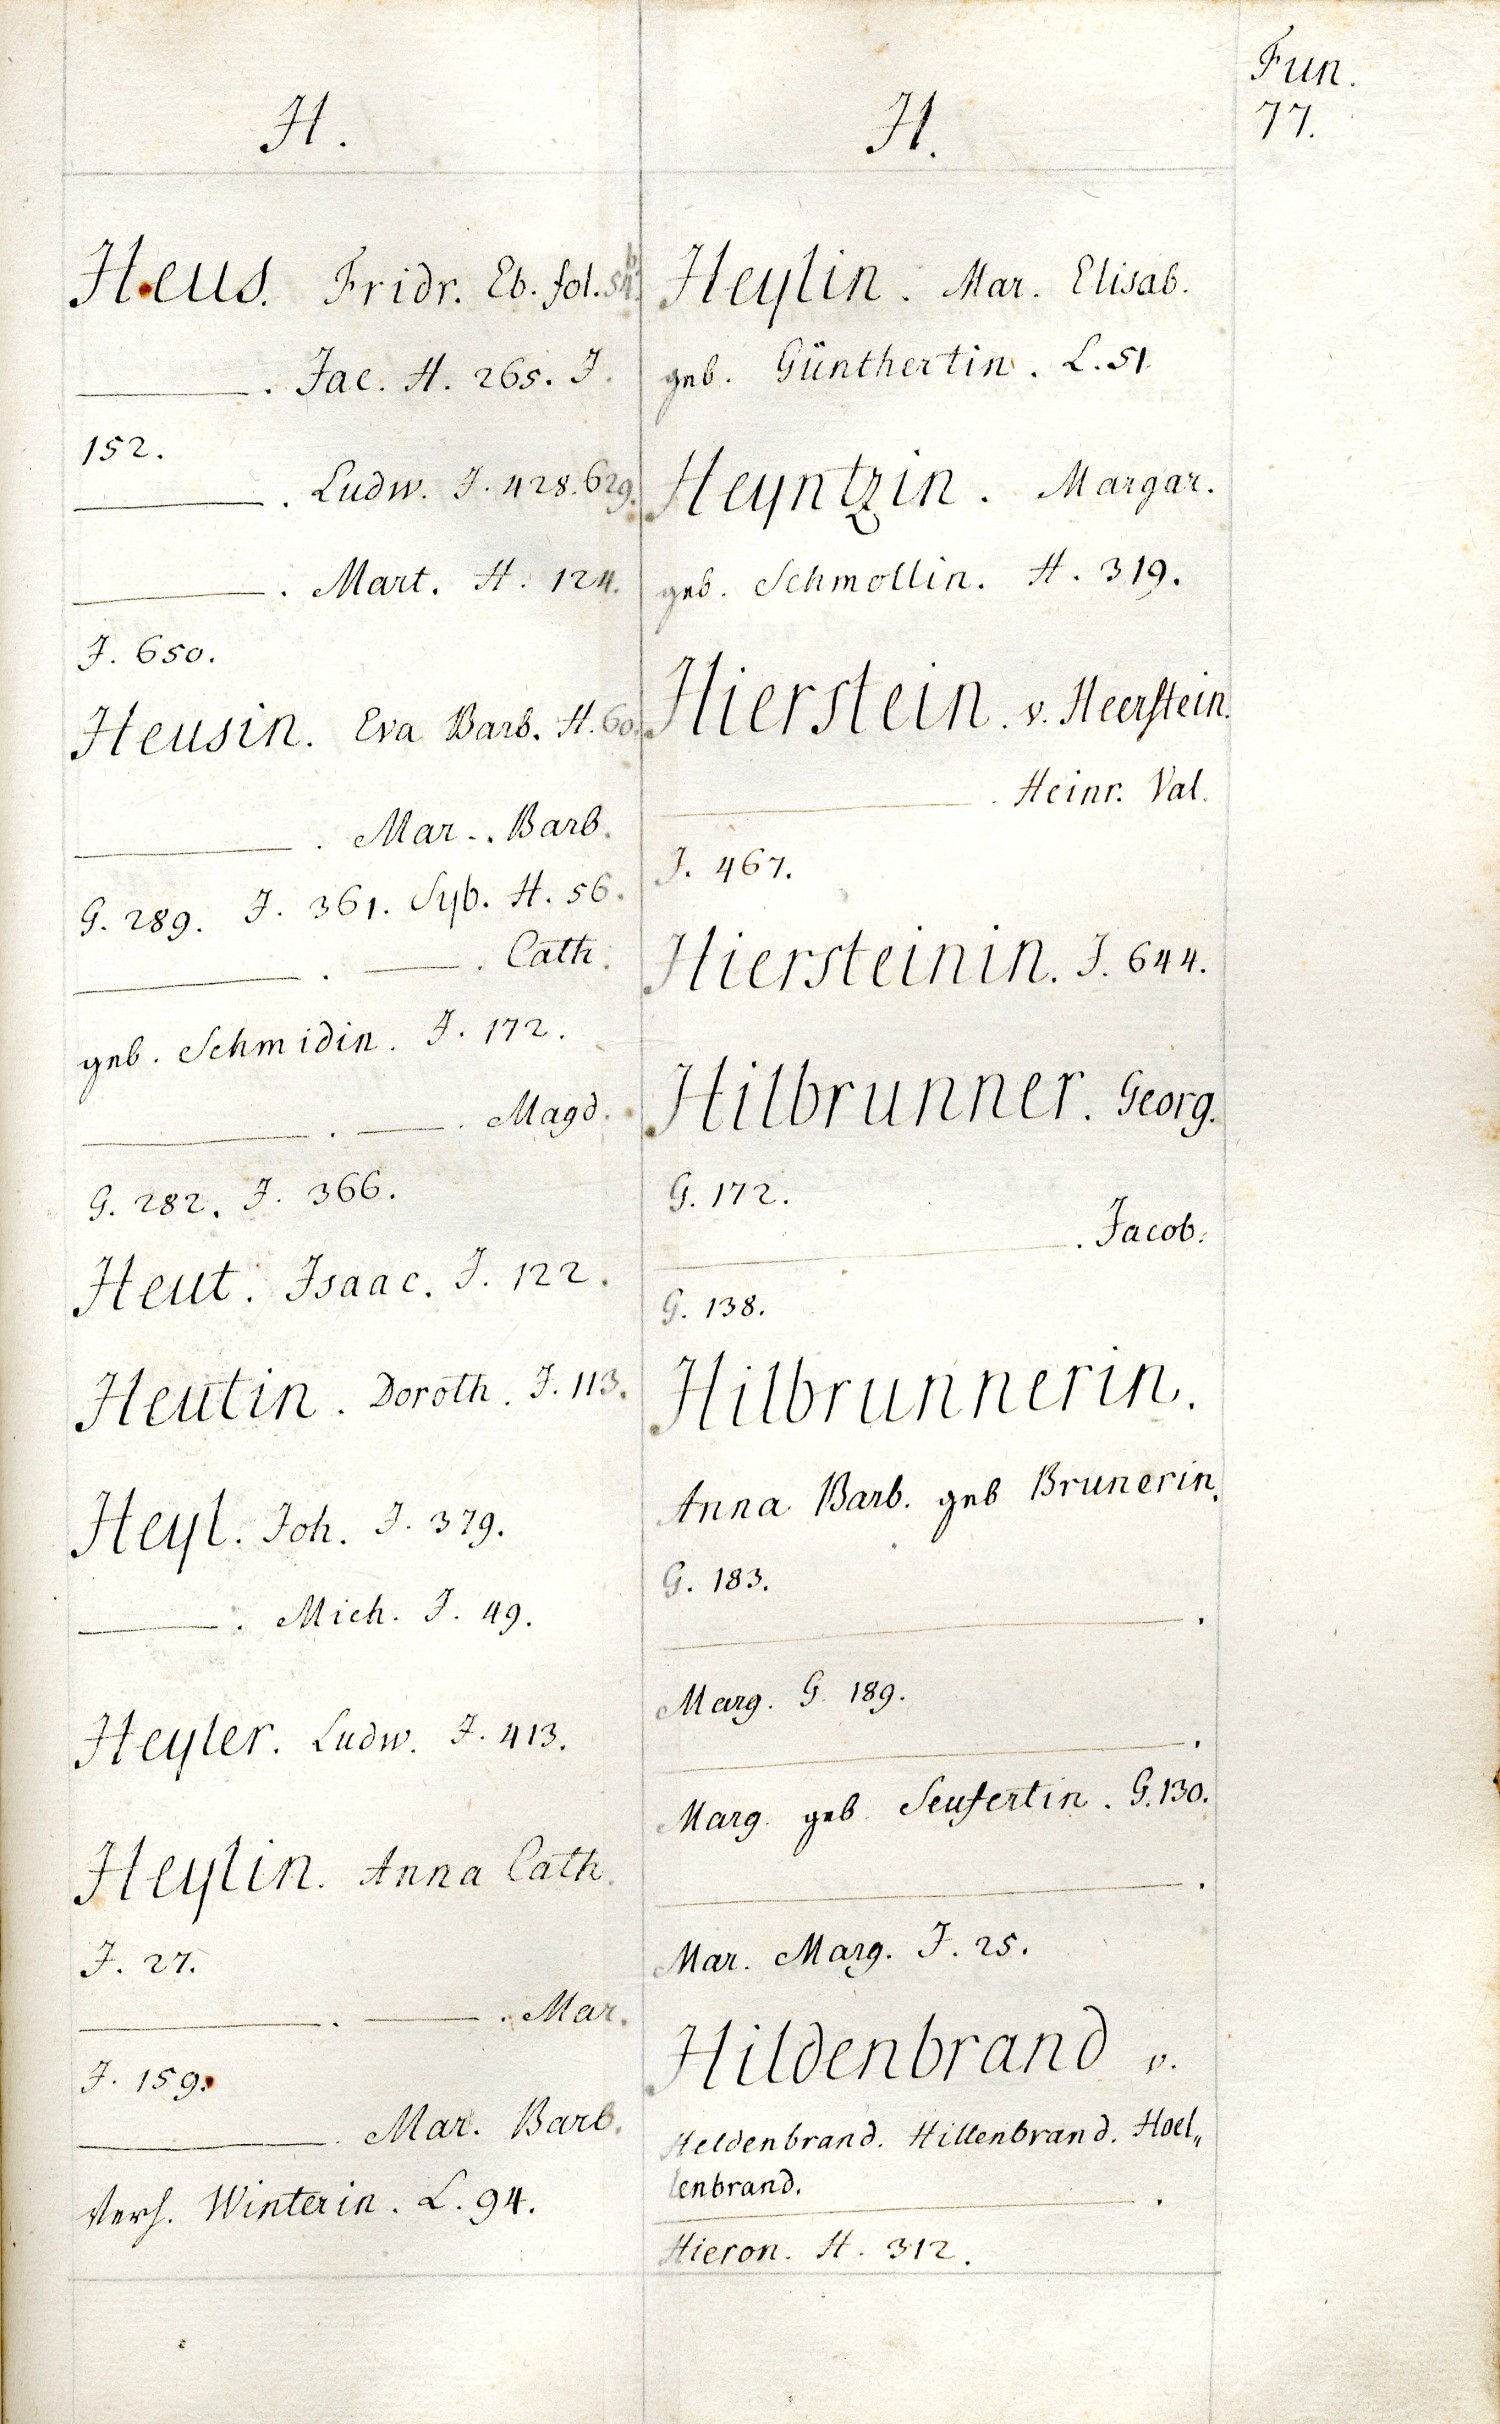 Fun.
77.
H.
Heus. Fridr. Eb. fol. 54.b
———. Jac. H. 265. J.
152.
———. Ludw. J. 428. 629.
———. Mart. H. 124.
J. 650.
Heusin. Eva Barb. H. 60.
———. Mar. Barb.
G. 289. J. 361. Syb. H. 56.
———. ———. Cath.
geb. Schmidin. J. 172.
———. ———. Magd.
G. 282. J. 366.
Heut. Isaac. J. 122.
Heutin. Doroth. J. 113.
Heyl. Joh. J. 379.
———. Mich. J. 49.
Heyler. Ludw. J. 413.
Heylin. Anna Cath.
J. 27.
———. ———. Mar.
J. 159.
———. Mar. Barb.
Verh. Winterin. L. 94.
H.
Heylin. Mar. Elisab.
geb. Günthertin. L. 51.
Heyntzin. Margar.
geb. Schmollin. H. 319.
Hierstein. v. Heerstein.
———. Heinr. Val.
J. 467.
Hiersteinin. J. 644.
Hilbrunner. Georg.
G. 172.
———. Jacob.
G. 138.
Hilbrunnerin.
Anna Barb. geb Brunerin.
G. 183.
———.
Marg. G. 189.
———.
Marg. geb. Seufertin. G. 130.
———.
Mar. Marg. J. 25.
Hildenbrand v.
Heldenbrand. Hillenbrand. Hoel„
lenbrand.
———.
Hieron. H. 312.